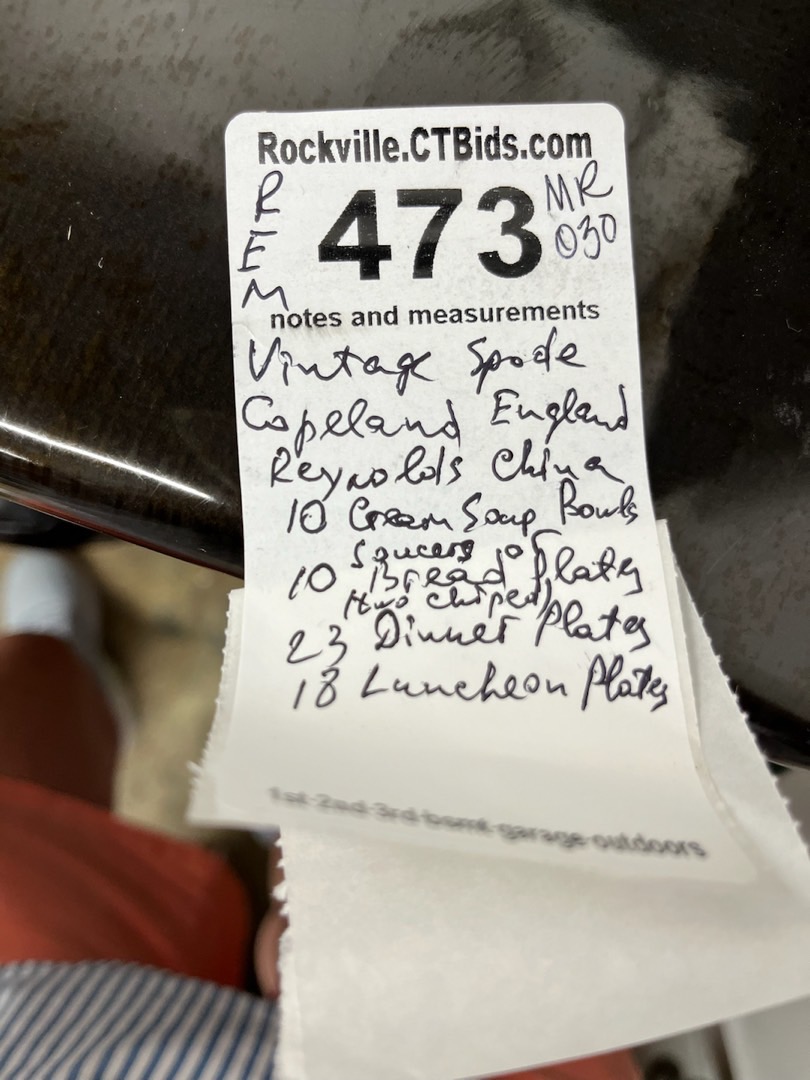 Rockville.CTBids.com
REM 473 MR 030
notes and measurements
Vintage Spode
Copeland England
Reynolds China
10 Cream Soup Bowls
Saucers
10 Bread Plates
(two chiped)
23 Dinner Plates
18 Luncheon Plates
1st-2nd-3rd-bsmt-garage-outdoors